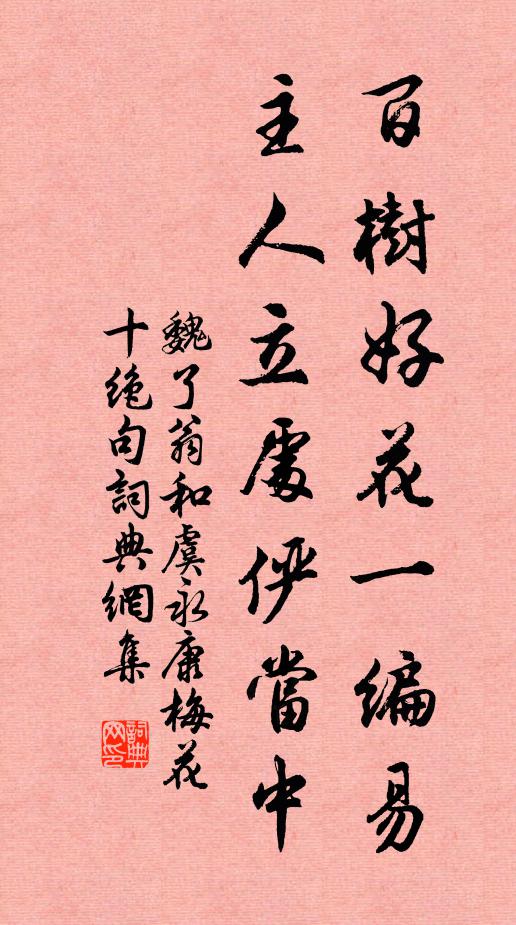 百樹好花一編易
主人立處儼當中
魏了翁和虞永康梅花
十絕句詞典網集
詞典網印